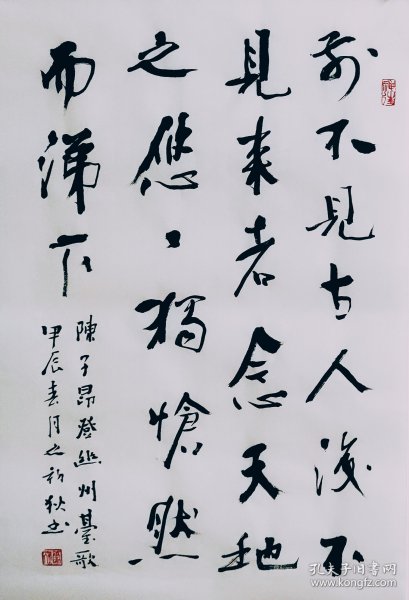 前不見古人後不
見来者念天地
之悠〻獨愴然
而涕下
陳子昂登幽州臺歌
甲辰春月之初狄书
孔夫子旧书网
www.kongfz.com